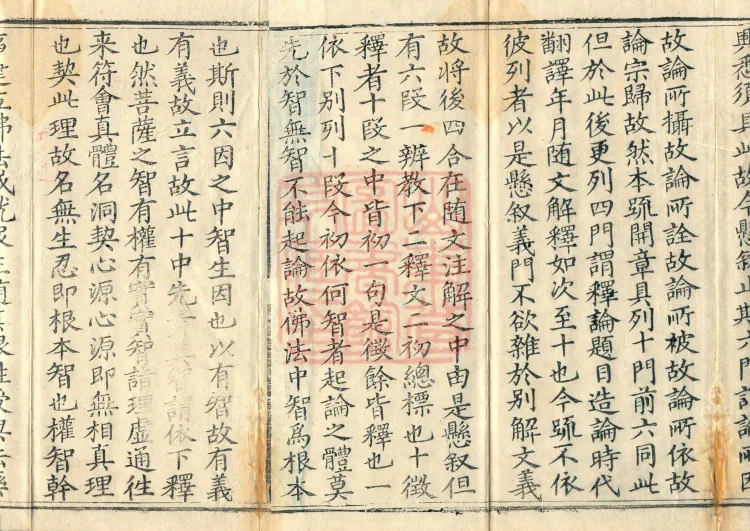 興悉須具此故今懸叙止斯六門
故論所攝故論所詮故論所被故論所依故
論宗歸故然本疏開章具列十門前六同此
但於此後更列四門謂釋論題目造論時代
翻譯年月随文解釋如次至十也今疏不依
彼列者以是懸叙義門不欲雜於別解文義
故將後四合在随文注解之中由是懸叙但
有六段一辨教下二釋文二初總標也十徵
釋者十段之中皆初一句是徵餘皆釋也一
依下別列十段今初依何智者起論之體莫
先於智無智不能起論故佛法中智為根本
也斯則六因之中智生因也以有智故有義
有義故立言故此十中先 謂依下釋
也然菩薩之智有權有實實智詣理虛通徃
来符會真體名洞契心源心源即無相真理
也契此理故名無生忍即根本智也權智幹